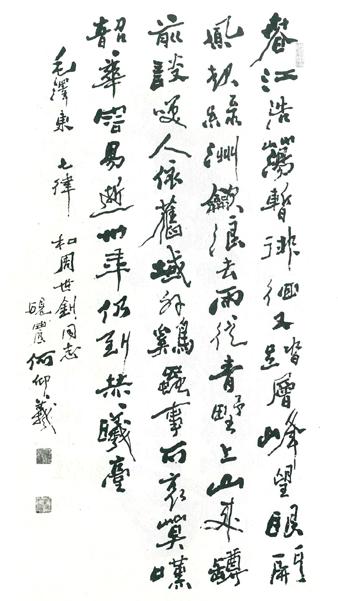 春江浩蕩暫徘徊又踏層峰望眼開
風起綠洲吹浪去雨從青野上山來罇
前談咲人依舊域外鷄蟲事可哀莫嘆
韶華容易逝卅年仍到赫曦臺
毛澤東 七律 和周世釗同志
何仰羲